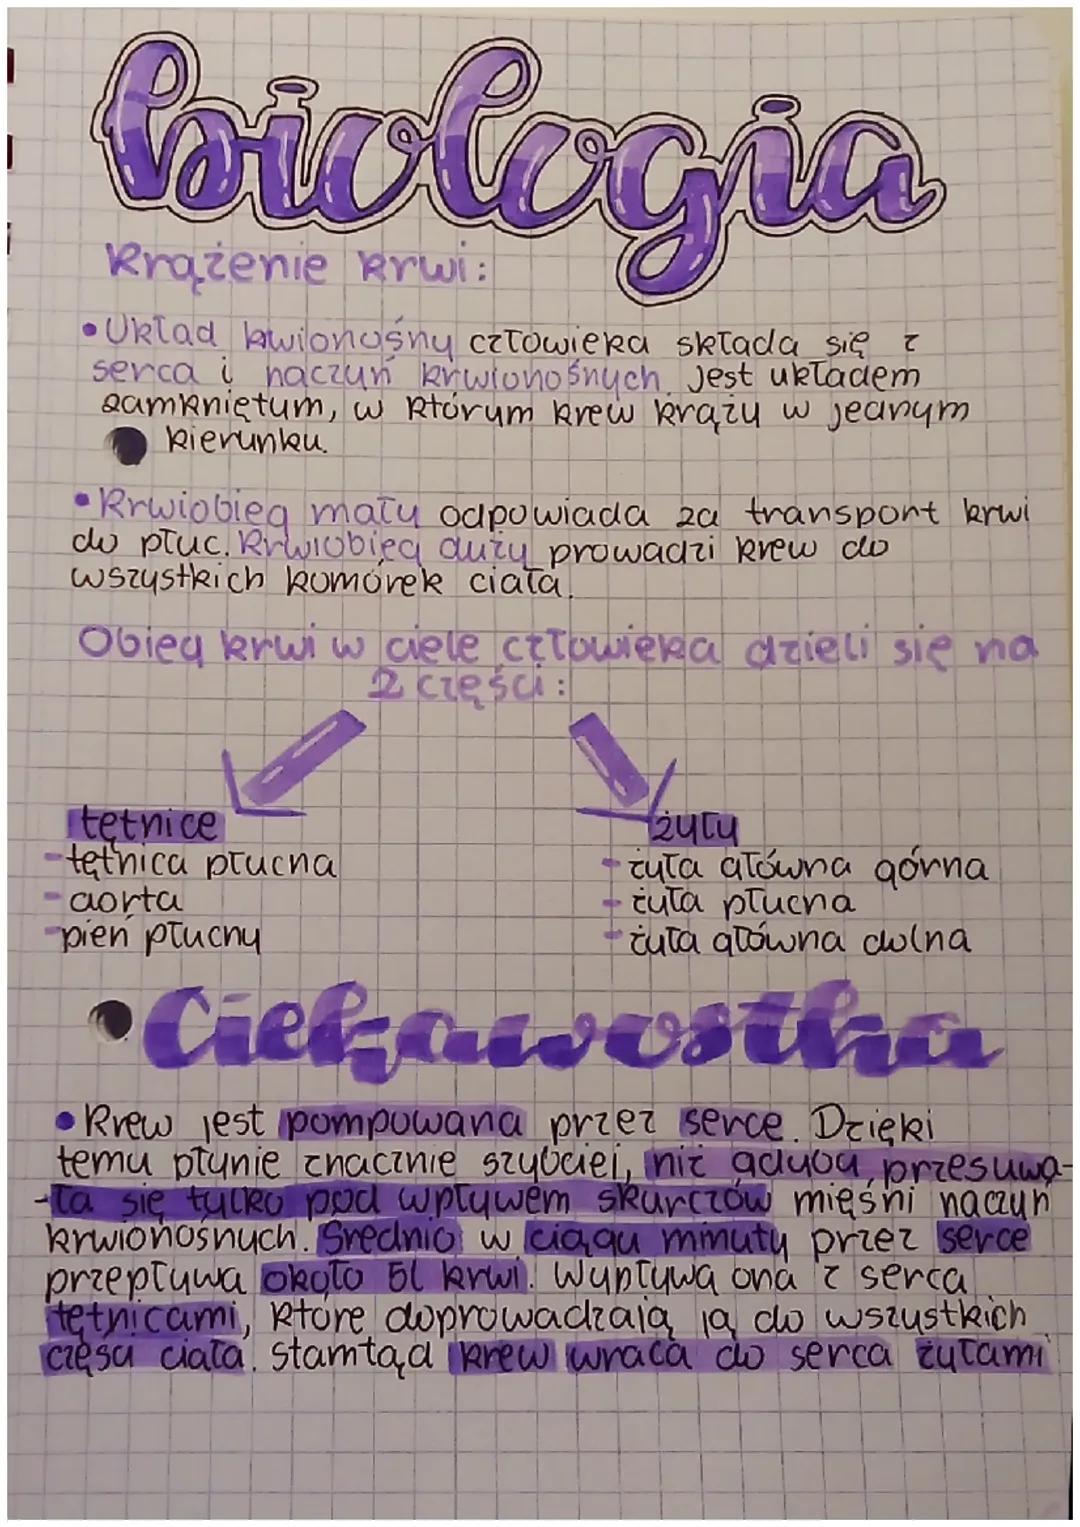 biologia
Krążenie krwi:
•Układ kwionośny człowieka składa się z
serca i naczyń krwionośnych. Jest układem
zamkniętym, w którym krew krąży w jednym
kierunku.
•Krwiobieg mały odpowiada za transport krwi
do płuc. Krwiobieg duży prowadzi krew do
wszystkich komórek ciała.
Obieg krwi w ciele człowieka dzieli się na
2 części:
tętnice
-tętnica płucna
-aorta
-pień płucny
żyły
-żyła główna górna
-żyła płucna
-żyła główna dolna
Ciekawostka
•Krew jest pompowana przez serce. Dzięki
temu płynie znacznie szybciej, niż gdyby przesuwa-
-ła się tylko pod wpływem skurczów mięśni naczyń
krwionośnych. Średnio w ciągu minuty przez serce
przepływa około 5l krwi. Wypływa ona z serca
tętnicami, które doprowadzają ją do wszystkich
części ciała. Stamtąd krew wraca do serca żyłami